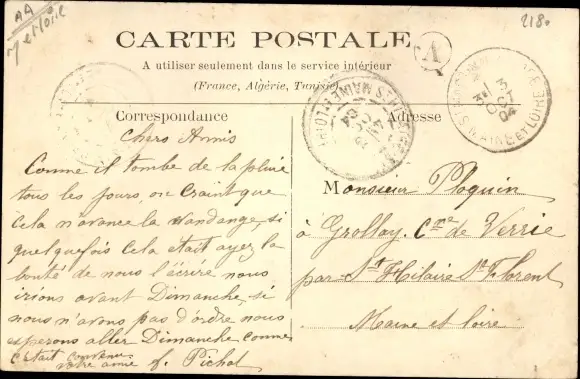 218.
CARTE POSTALE
A
A utiliser seulement dans le service intérieur
(France, Algérie, Tunisie)
Correspondance
Adresse
chers Amis
Comme il tombe de la pluie
tous les jours, on craint que
Cela n'avance la vandange, si
quelquefois Cela etait ayez la
bonté de nous l'écrire nous
irions avant Dimanche, si
nous n'avons pas d'ordre nous
esperons aller Dimanche comme
c'etait convenu
votre amie f. Pichot
Monsieur Ploquin
à Grollay. Cne de Verrie
par St Hilaire St Florent
Maine et loire
3
OCT
04
MAINE et LOIRE